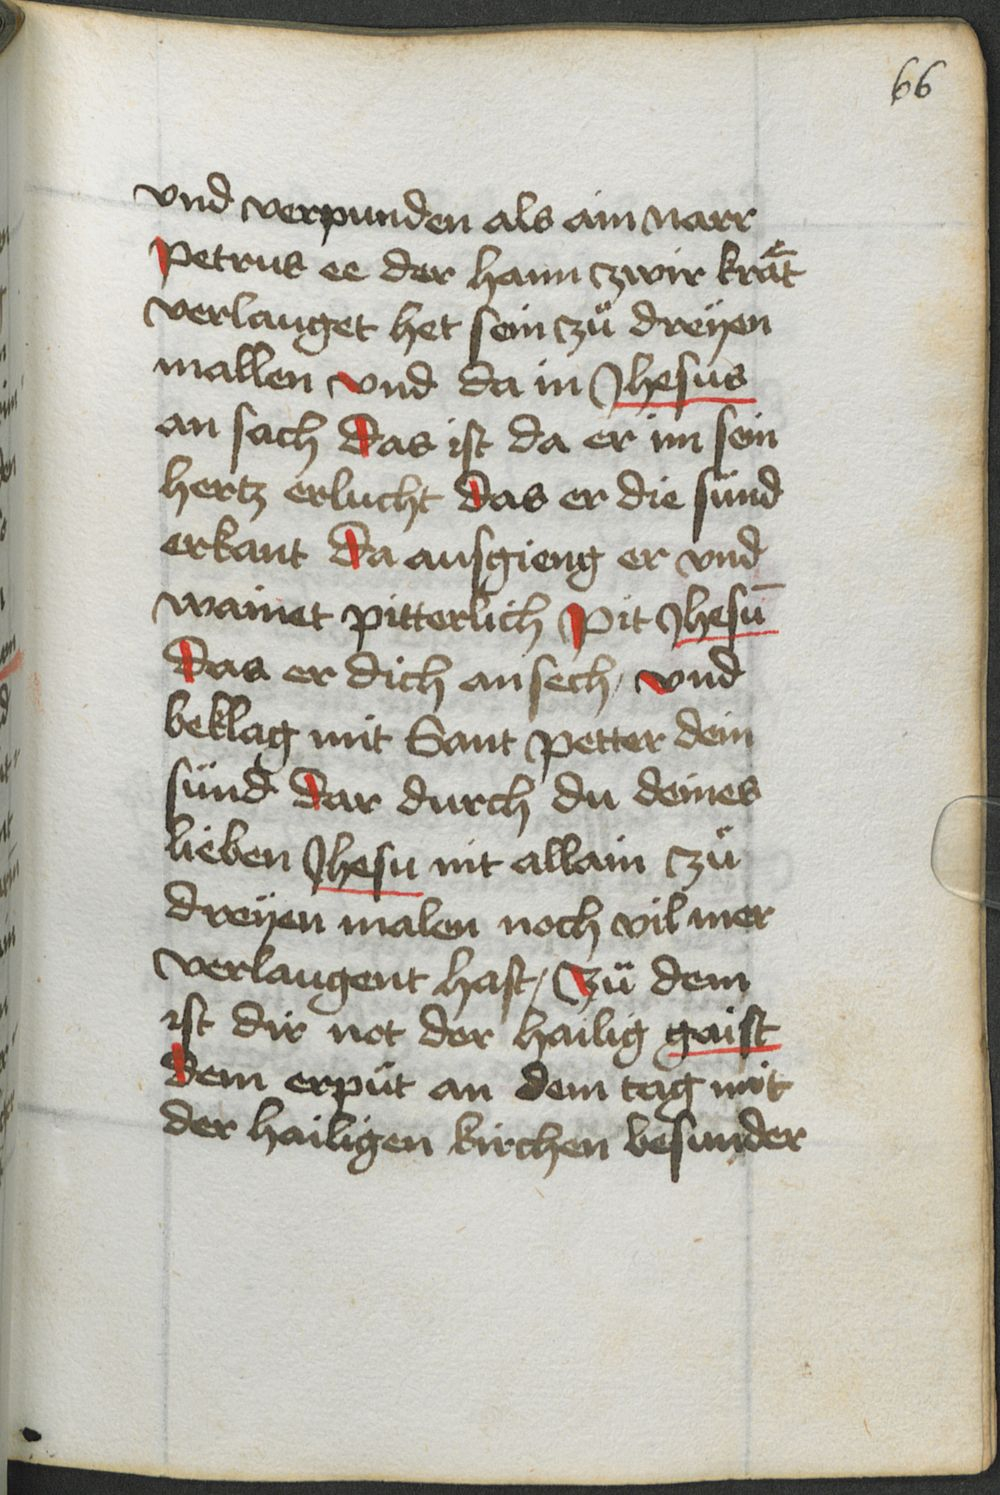 66
vnd verpunden als ain narr
Petrus ee der hann zwir krät
verlauget het sein zů dreÿen
mallen vnd da in Jhesus
an sach das ist da er im sein
hertz erlucht das er die sünd
erkant da ausgieng er vnd
wainet pitterlich Pit Jhesū
das er dich an sech / vnd
beklag mit Sant petter dein
sünd dar durch du deines
lieben Jhesu nit allain zů
dreÿen malen noch vil mer
verlaugent hast / Zů dem
ist dir not der hailig gaist
dem erpüt an dem tag mit
der hailigen kirchen besunder